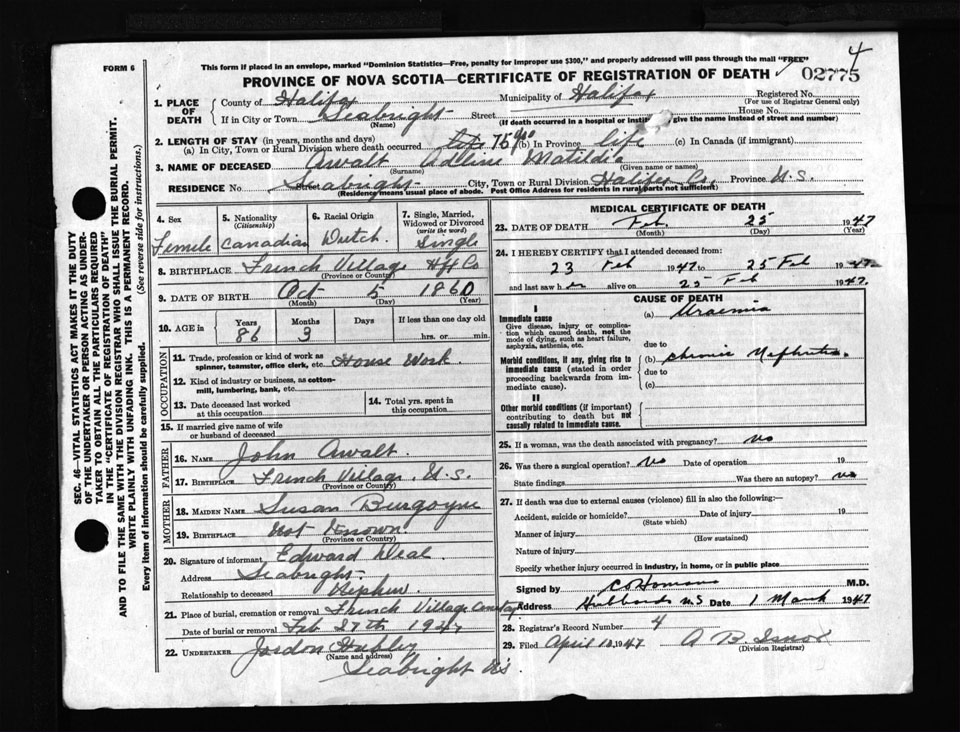 4
FORM 6
This form if placed in an envelope, marked "Dominion Statistics—Free, penalty for improper use $300," and properly addressed will pass through the mail "FREE"
PROVINCE OF NOVA SCOTIA—CERTIFICATE OF REGISTRATION OF DEATH
02775
SEC. 46—VITAL STATISTICS ACT MAKES IT THE DUTY
OF THE UNDERTAKER OR PERSON ACTING AS UNDER-
TAKER TO OBTAIN ALL THE PARTICULARS REQUIRED
IN THE "CERTIFICATE OF REGISTRATION OF DEATH"
AND TO FILE THE SAME WITH THE DIVISION REGISTRAR WHO SHALL ISSUE THE BURIAL PERMIT.
WRITE PLAINLY WITH UNFADING INK. THIS IS A PERMANENT RECORD.
Every item of information should be carefully supplied. (See reverse side for instructions.)
1. PLACE OF DEATH
County of Halifax Municipality of Halifax Registered No.
(For use of Registrar General only)
If in City or Town Seabright Street House No.
(Name) (If death occurred in a hospital or give the name instead of street and number)
2. LENGTH OF STAY (in years, months and days)
(a) In City, Town or Rural Division where death occurred life (b) In Province life (c) In Canada (if immigrant)
3. NAME OF DECEASED Awalt Adline Matildia
(Surname) (Given name or names)
RESIDENCE No Street Seabright City, Town or Rural Division Halifax Co. Province N.S.
(Residency means usual place of abode. Post Office Address for residents in rural parts not sufficient)
4. Sex
Femele
5. Nationality
(Citizenship)
Canadian
6. Racial Origin
Dutch
7. Single, Married,
Widowed or Divorced
(write the word)
Single
8. BIRTHPLACE French Village Hfx Co
(Province or Country)
9. DATE OF BIRTH Oct 5 1860
(Month) (Day) (Year)
10. AGE in Years Months Days If less than one day old
86 3 hrs. or min.
OCCUPATION
11. Trade, profession or kind of work as House Work
spinner, teamster, office clerk, etc.
12. Kind of industry or business, as cotton-
mill, lumbering, bank, etc.
13. Date deceased last worked
at this occupation
14. Total yrs. spent in
this occupation
15. If married give name of wife
or husband of deceased
FATHER
16. NAME John Awalt
17. BIRTHPLACE French Village, N.S.
(Province or Country)
MOTHER
18. MAIDEN NAME Susan Burgoyne
19. BIRTHPLACE Not Known
(Province or Country)
20. Signature of informant Edward Deal
Address Seabright
Relationship to deceased Nephew
21. Place of burial, cremation or removal French Village
Date of burial or removal Feb 27th 1947
22. UNDERTAKER Jordon Hubley
(Name and address)
Seabright NS
MEDICAL CERTIFICATE OF DEATH
23. DATE OF DEATH Feb. 25 1947
(Month) (Day) (Year)
24. I HEREBY CERTIFY that I attended deceased from:
23 Feb 1947 to 25 Feb 1947
and last saw her alive on 25 Feb 1947.
CAUSE OF DEATH
I
Immediate cause
Give disease, injury or complica-
tion which caused death, not the
mode of dying, such as heart failure,
asphyxia, asthenia, etc.
(a) Uraemia
due to
Morbid conditions, if any, giving rise to
immediate cause (stated in order
proceeding backwards from im-
mediate cause).
(b) Chronic Nephritis.
due to
(c)
II
Other morbid conditions (if important)
contributing to death but not
causally related to immediate cause.
25. If a woman, was the death associated with pregnancy? No
26. Was there a surgical operation? No Date of operation 19
State findings Was there an autopsy? No
27. If death was due to external causes (violence) fill in also the following:—
Accident, suicide or homicide? Date of injury 19
(State which)
Manner of injury
(How sustained)
Nature of injury
Specify whether injury occurred in industry, in home, or in public place
Signed by M.D.
Address Hubbards N.S Date 1 March 1947
28. Registrar's Record Number 4
29. Filed April 1947 A B. Isnor
(Division Registrar)